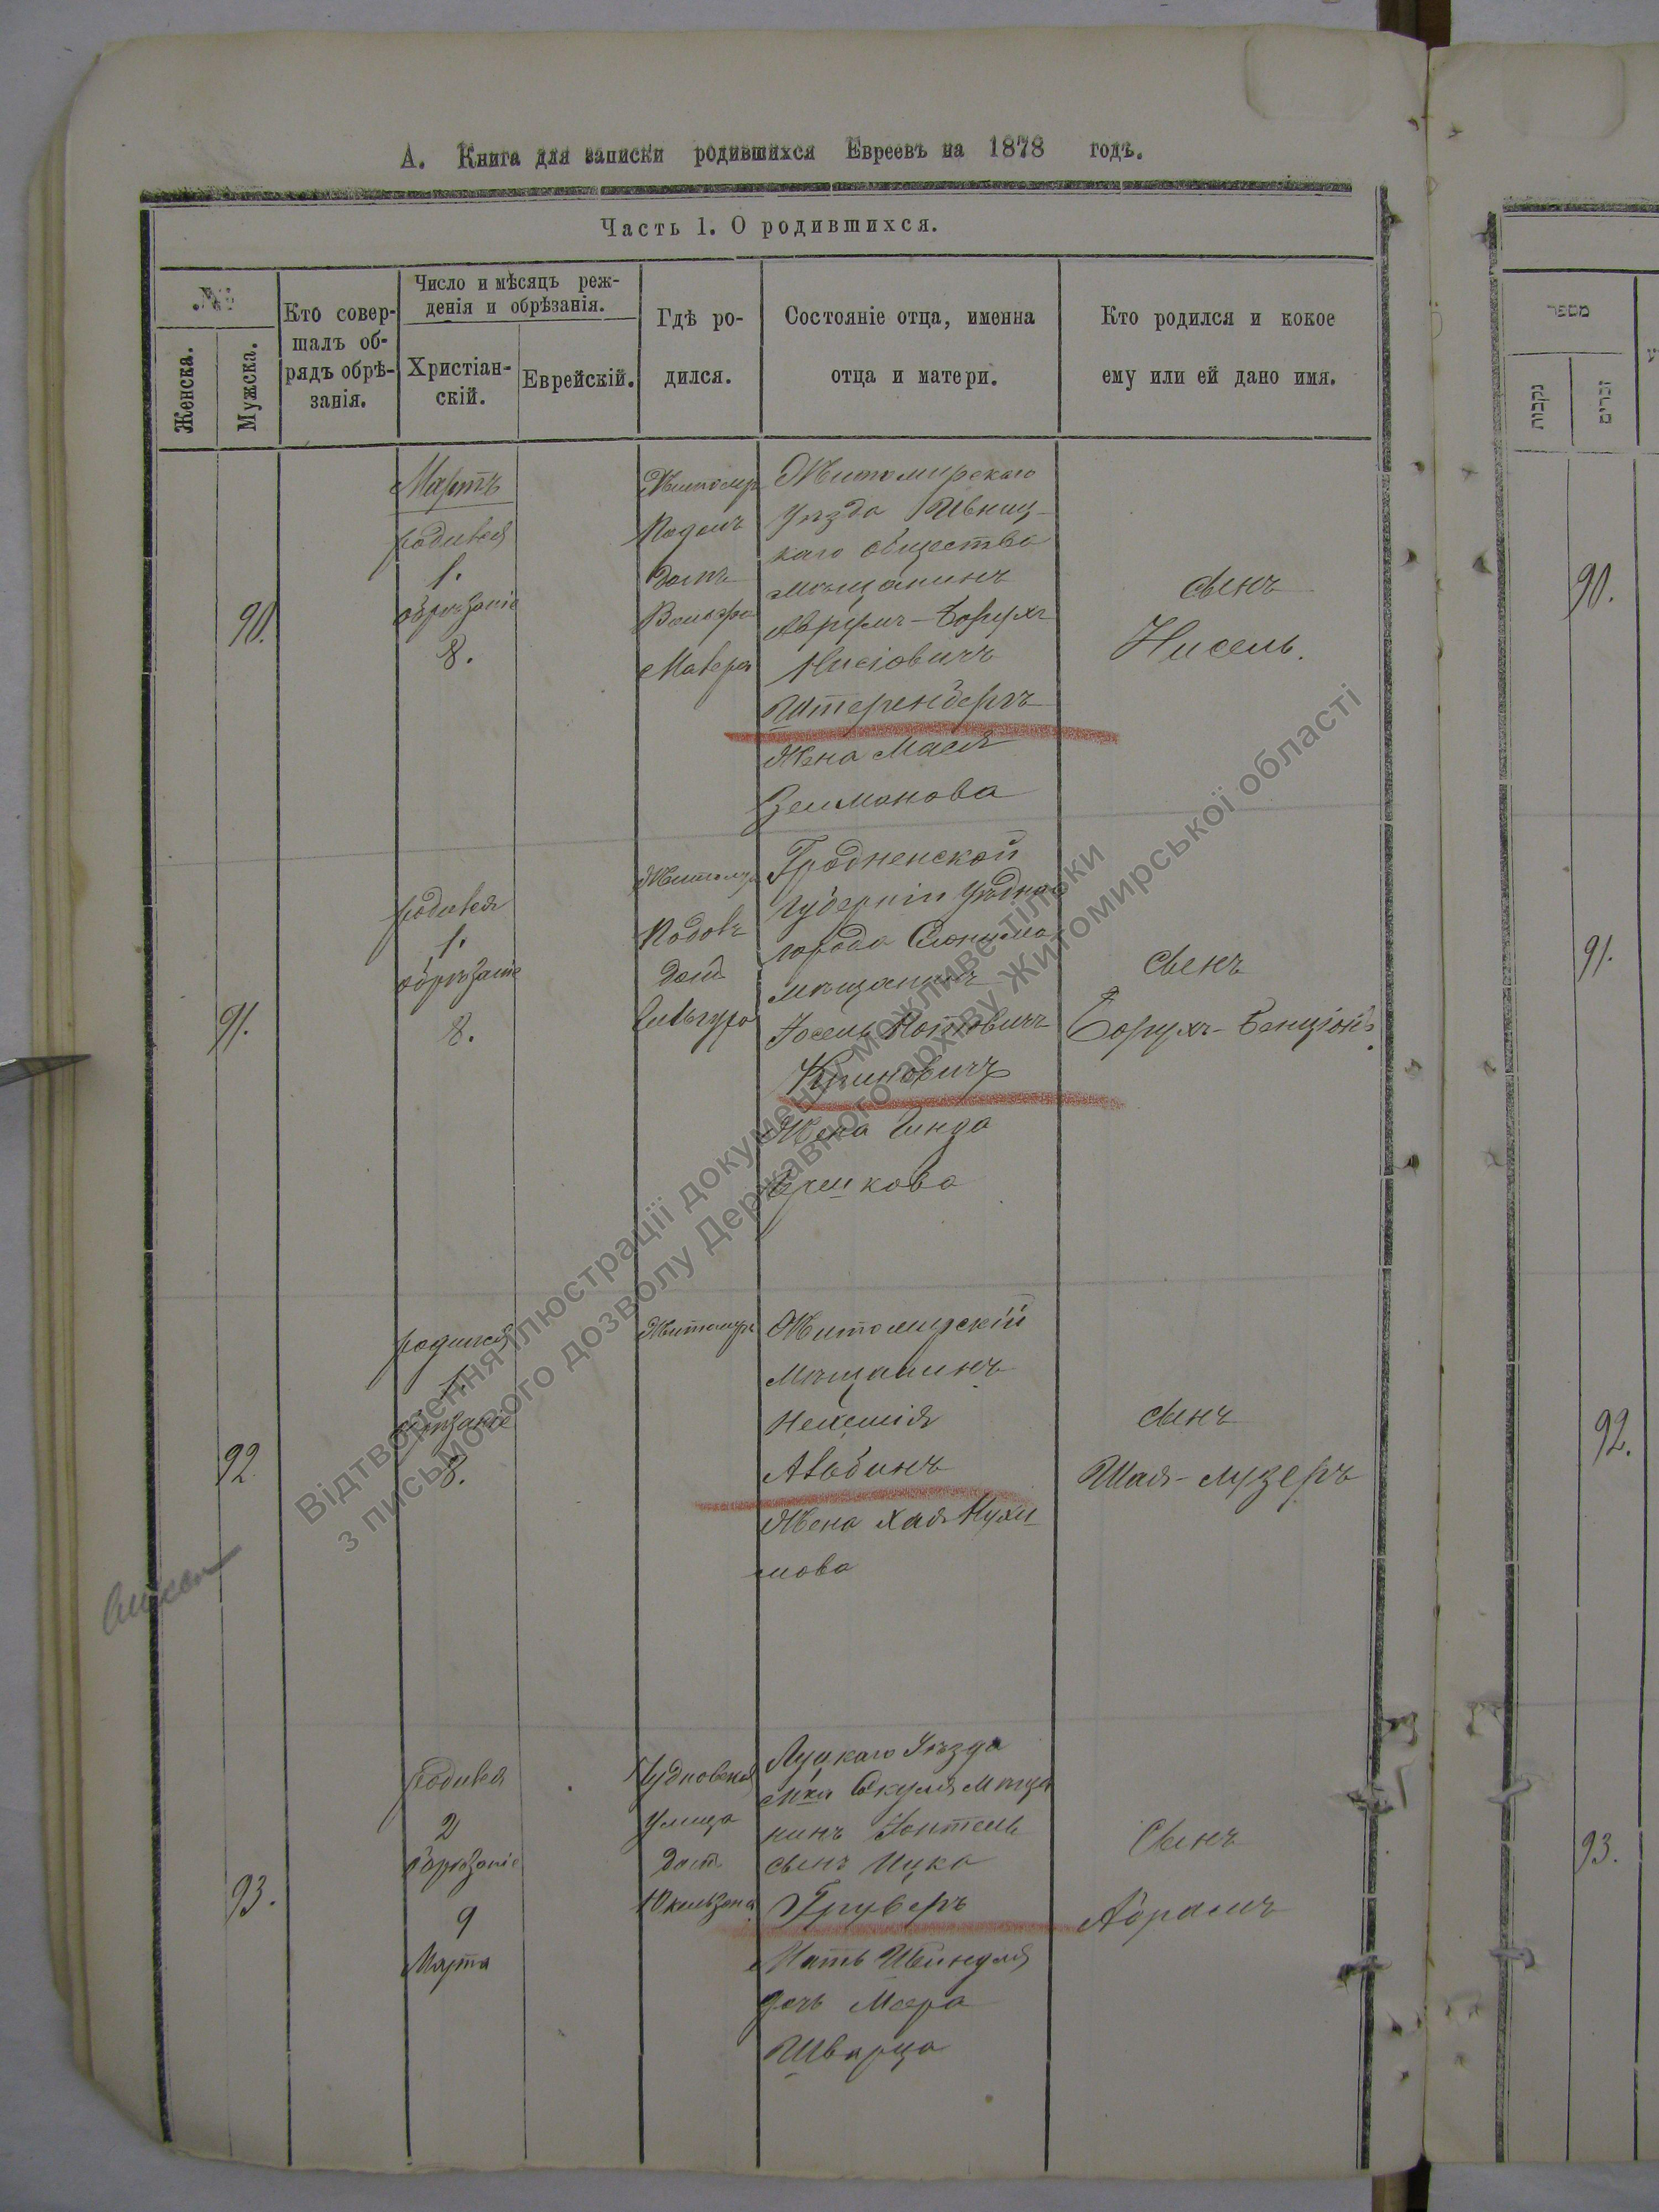 А. Книга для записки родившихся Евреевъ на 1878 годъ.
Часть 1. О родившихся.
№
Женска.
Мужска.
Кто совер-
шалъ об-
рядъ обрѣ-
занія.
Число и мѣсяцъ реж-
денія и обрѣзанія.
Христіан-
скій.
Еврейскій.
Гдѣ ро-
дился.
Состояніе отца, именна
отца и матери.
Кто родился и кокое
ему или ей дано имя.
90.
Мартъ
родився
1.
обрѣзаніе
8.
Житомир
Подолъ
домъ
Вольфа
Житомирскаго
Уѣзда Ивниц-
каго общества
мѣщанинъ
Аврумъ-Борухъ
Нисіовичъ
Штеренбергъ
Жена Мася
Зелмонова
сынъ
Нисель.
91.
родився
1.
обрѣзаніе
8.
Житомир
домъ
Гродненской
губерніи Уѣдна
города Слонима
мѣщанинъ
Іосель
Жена Гинда
сынъ
Борухъ-Бенціонъ.
92
родился
1.
обрѣзаніе
8.
Житомиръ
Житомирскій
Мѣщанинъ
Нехемія
Альбинъ
Жена Хая Нухи-
мова
сынъ
Шая-лузеръ
93.
родився
2
обрѣзаніе
9
Марта
Чудновская
улица
домъ
Луцкаго Уѣзда
мѣща
нинъ
сынъ Ицка
Груберъ
Мать Шейндля
дочь Меера
Шварца
Сынъ
Абрамъ
מספר
נקבות
זכרים
90.
91.
92.
93.
Відтворення ілюстрації документу можливе тільки
з письмового дозволу Державного архіву Житомирської області